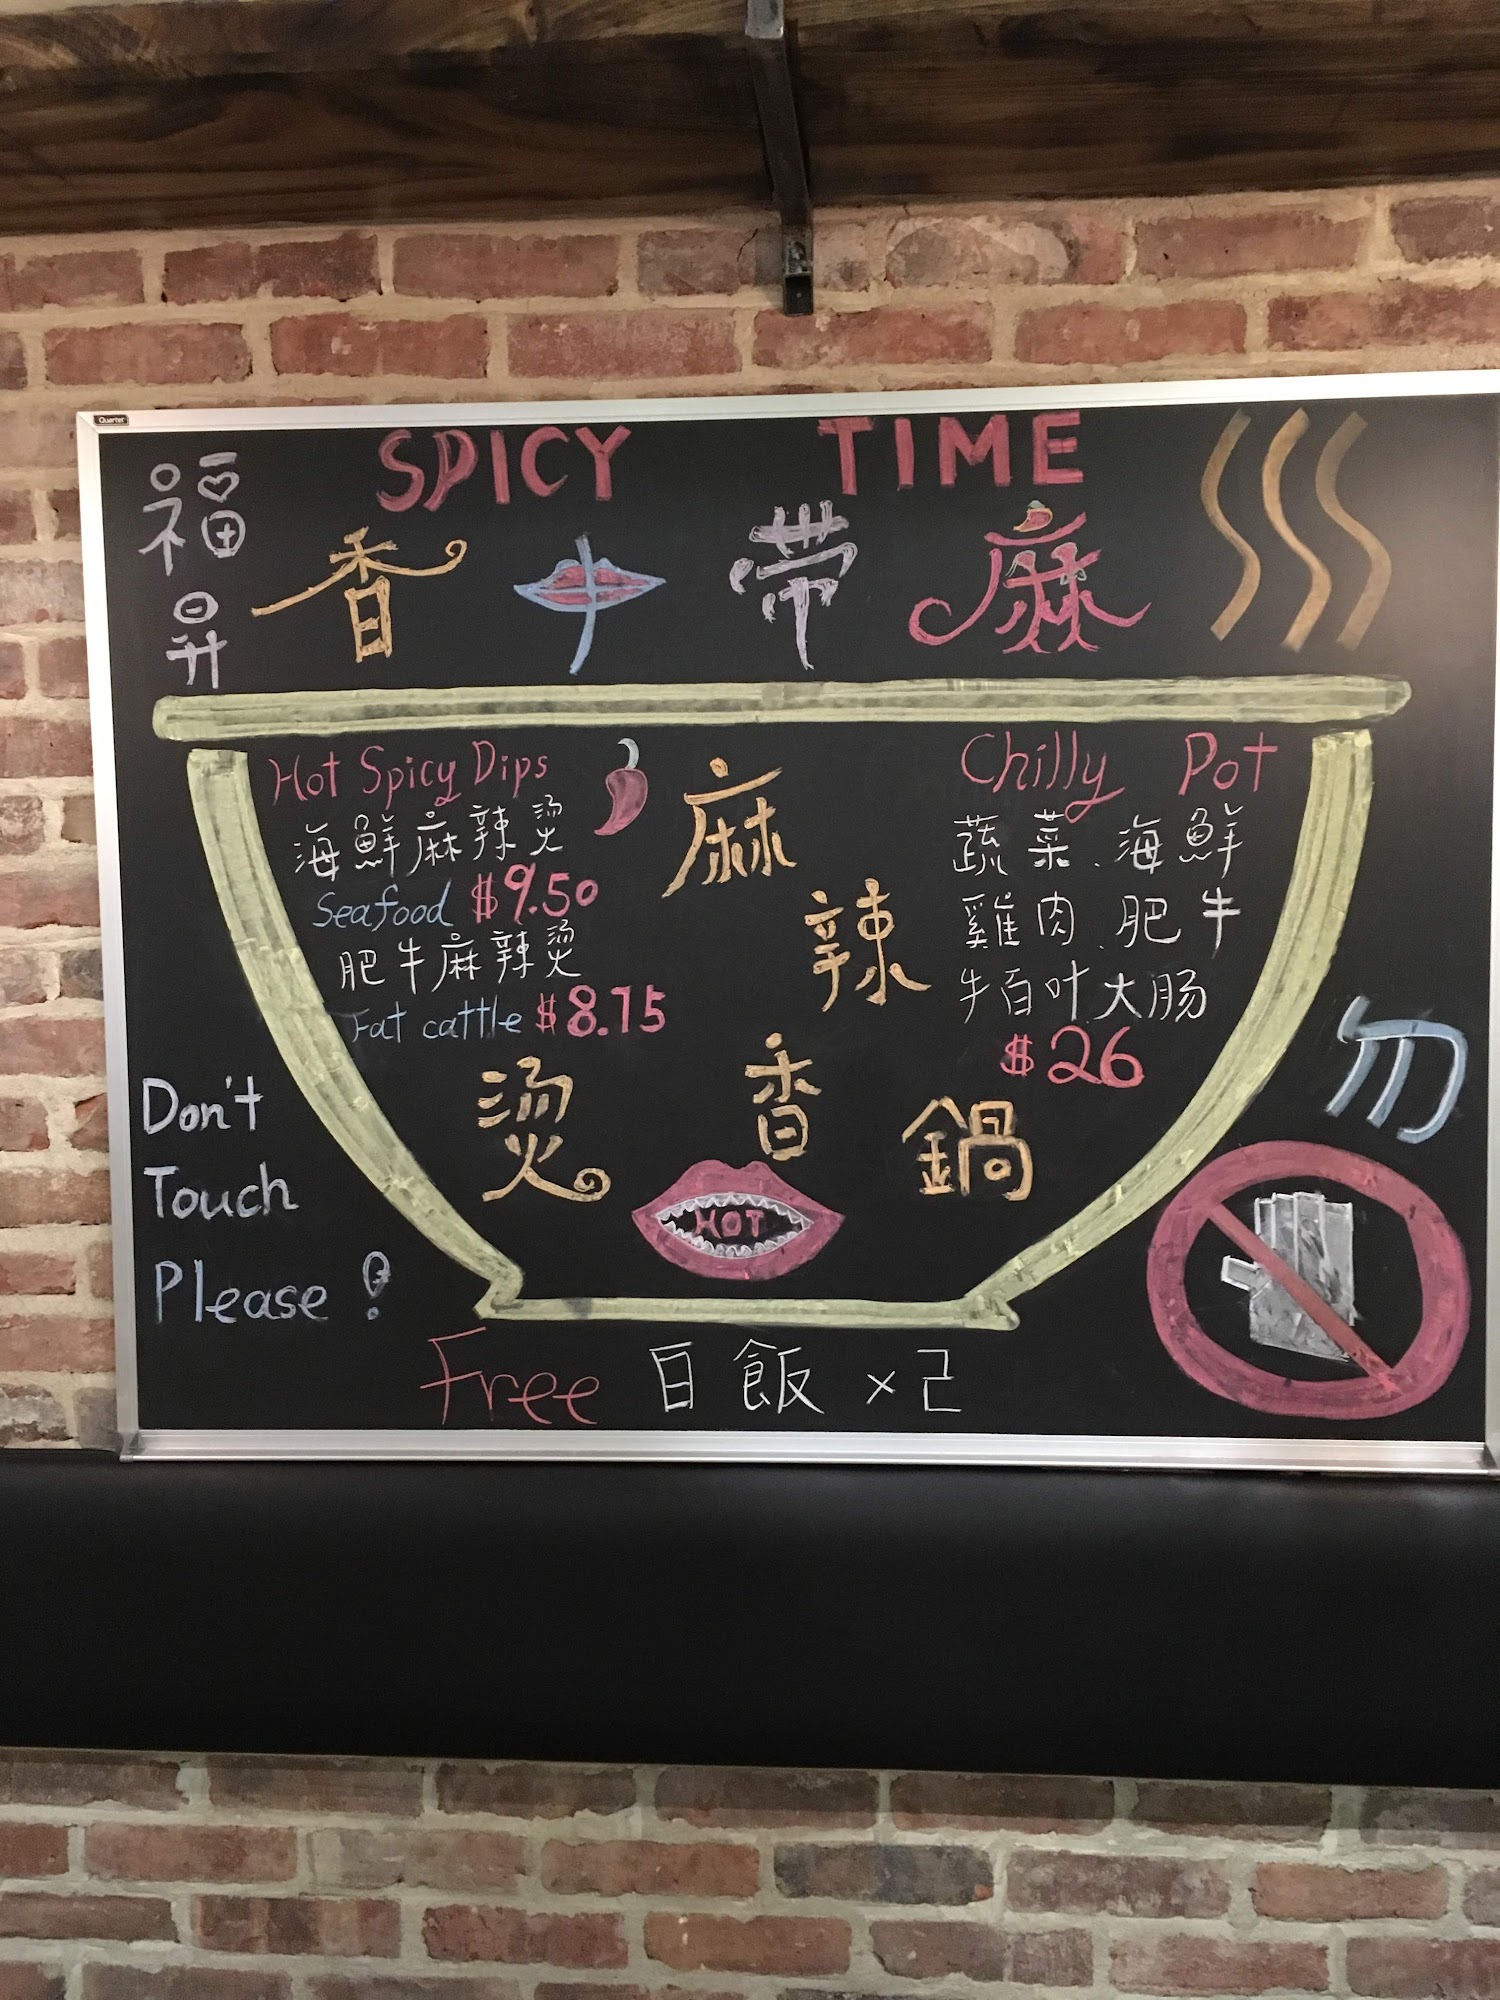 Quartet
SPICY TIME
福昇
香中带麻
Hot Spicy Dips
海鮮麻辣烫
Seafood $9.50
肥牛麻辣烫
Fat cattle $8.75
麻辣
烫 香 鍋
HOT
Chilly Pot
蔬菜、海鮮
雞肉、肥牛
牛百叶、大肠
$26
Don't
Touch
Please!
勿
Free 白飯 x2